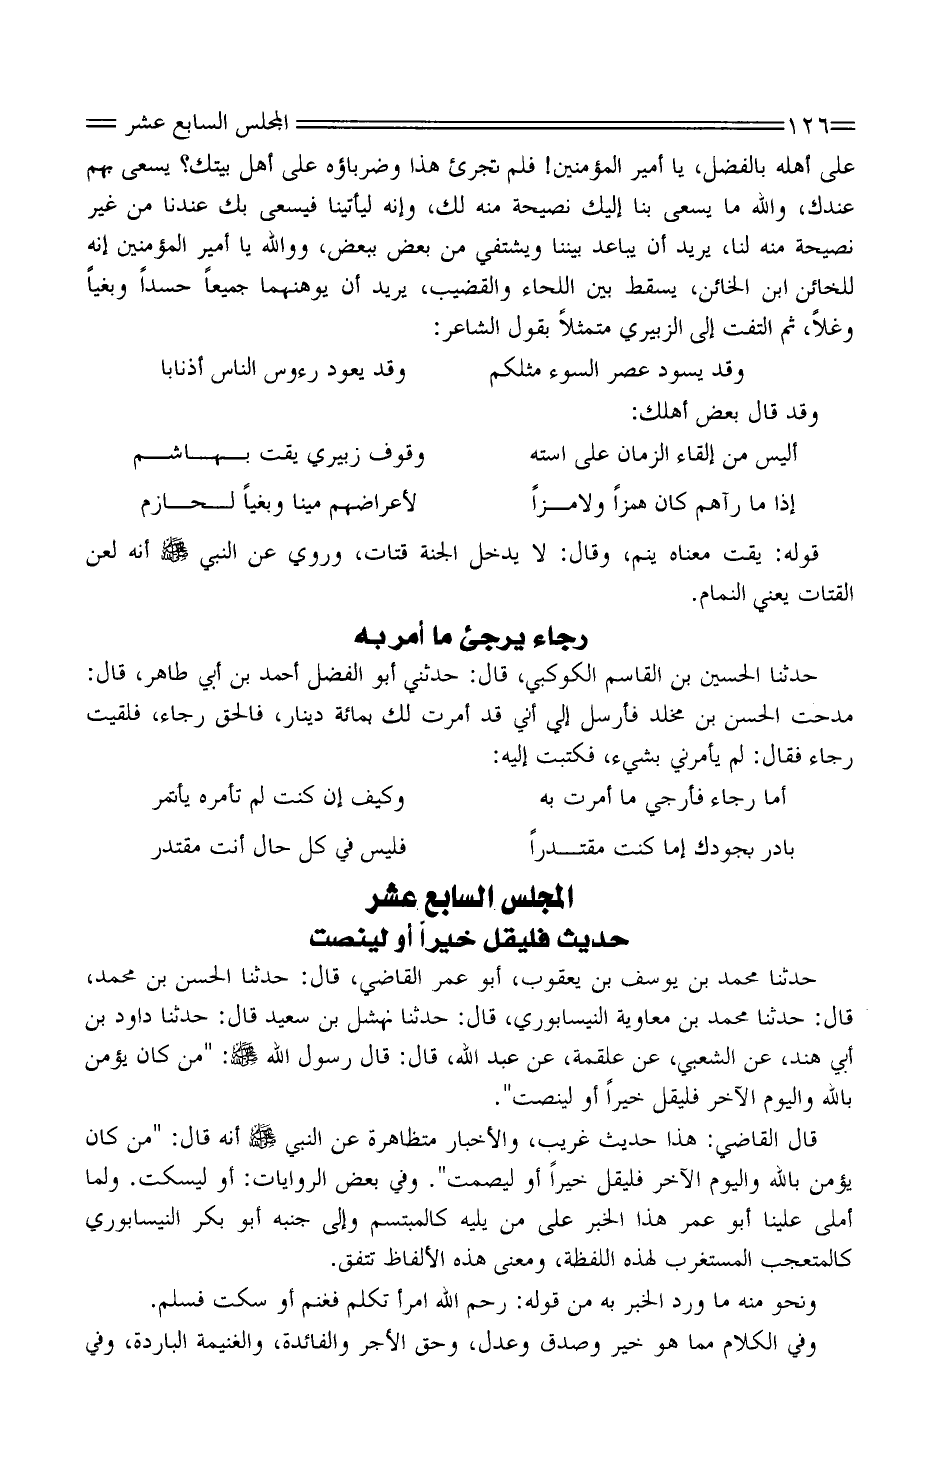 ١٢٦ المجلس السابع عشر
على أهله بالفضل، يا أمير المؤمنين! فلم تجرئ هذا وضرباؤه على أهل بيتك؟ يسعى بهم
عندك، والله ما يسعى بنا إليك نصيحة منه لك، وإنه ليأتينا فيسعى بك عندنا من غير
نصيحة منه لنا، يريد أن يباعد بيننا ويشتفي من بعض ببعض، ووالله يا أمير المؤمنين إنه
للخائن ابن الخائن، يسقط بين اللحاء والقضيب، يريد أن يوهنهما جميعاً حسداً وبغياً
وغلاً، ثم التفت إلى الزبيري متمثلاً بقول الشاعر:
وقد يسود عصر السوء مثلكم وقد يعود رءوس الناس أذنابا
وقد قال بعض أهلك:
أليس من إلقاء الزمان على استه وقوف زبيري يقت بـهـاشـم
إذا ما رآهم كان همزاً ولامـزاً لأعراضهم مينا وبغياً لـحـازم
قوله: يقت معناه ينم، وقال: لا يدخل الجنة قتات، وروي عن النبي ﷺ أنه لعن
القتات يعني النمام.
رجاء يرجئ ما أمر به
حدثنا الحسين بن القاسم الكوكبي، قال: حدثني أبو الفضل أحمد بن أبي طاهر، قال:
مدحت الحسن بن مخلد فأرسل إلي أني قد أمرت لك بمائة دينار، فالحق رجاء، فلقيت
رجاء فقال: لم يأمرني بشيء، فكتبت إليه:
أما رجاء فأرجي ما أمرت به وكيف إن كنت لم تأمره يأتمر
بادر بجودك إما كنت مقتـدراً فليس في كل حال أنت مقتدر
المجلس السابع عشر
حديث فليقل خيراً أو لينصت
حدثنا محمد بن يوسف بن يعقوب، أبو عمر القاضي، قال: حدثنا الحسن بن محمد،
قال: حدثنا محمد بن معاوية النيسابوري، قال: حدثنا نهشل بن سعيد قال: حدثنا داود بن
أبي هند، عن الشعبي، عن علقمة، عن عبد الله، قال: قال رسول الله ﷺ: "من كان يؤمن
بالله واليوم الآخر فليقل خيراً أو لينصت".
قال القاضي: هذا حديث غريب، والأخبار متظاهرة عن النبي ﷺ أنه قال: "من كان
يؤمن بالله واليوم الآخر فليقل خيراً أو ليصمت". وفي بعض الروايات: أو ليسكت. ولما
أملى علينا أبو عمر هذا الخبر على من يليه كالمبتسم وإلى جنبه أبو بكر النيسابوري
كالمتعجب المستغرب لهذه اللفظة، ومعنى هذه الألفاظ تتفق.
ونحو منه ما ورد الخبر به من قوله: رحم الله امرأ تكلم فغنم أو سكت فسلم.
وفي الكلام مما هو خير وصدق وعدل، وحق الأجر والفائدة، والغنيمة الباردة، وفي